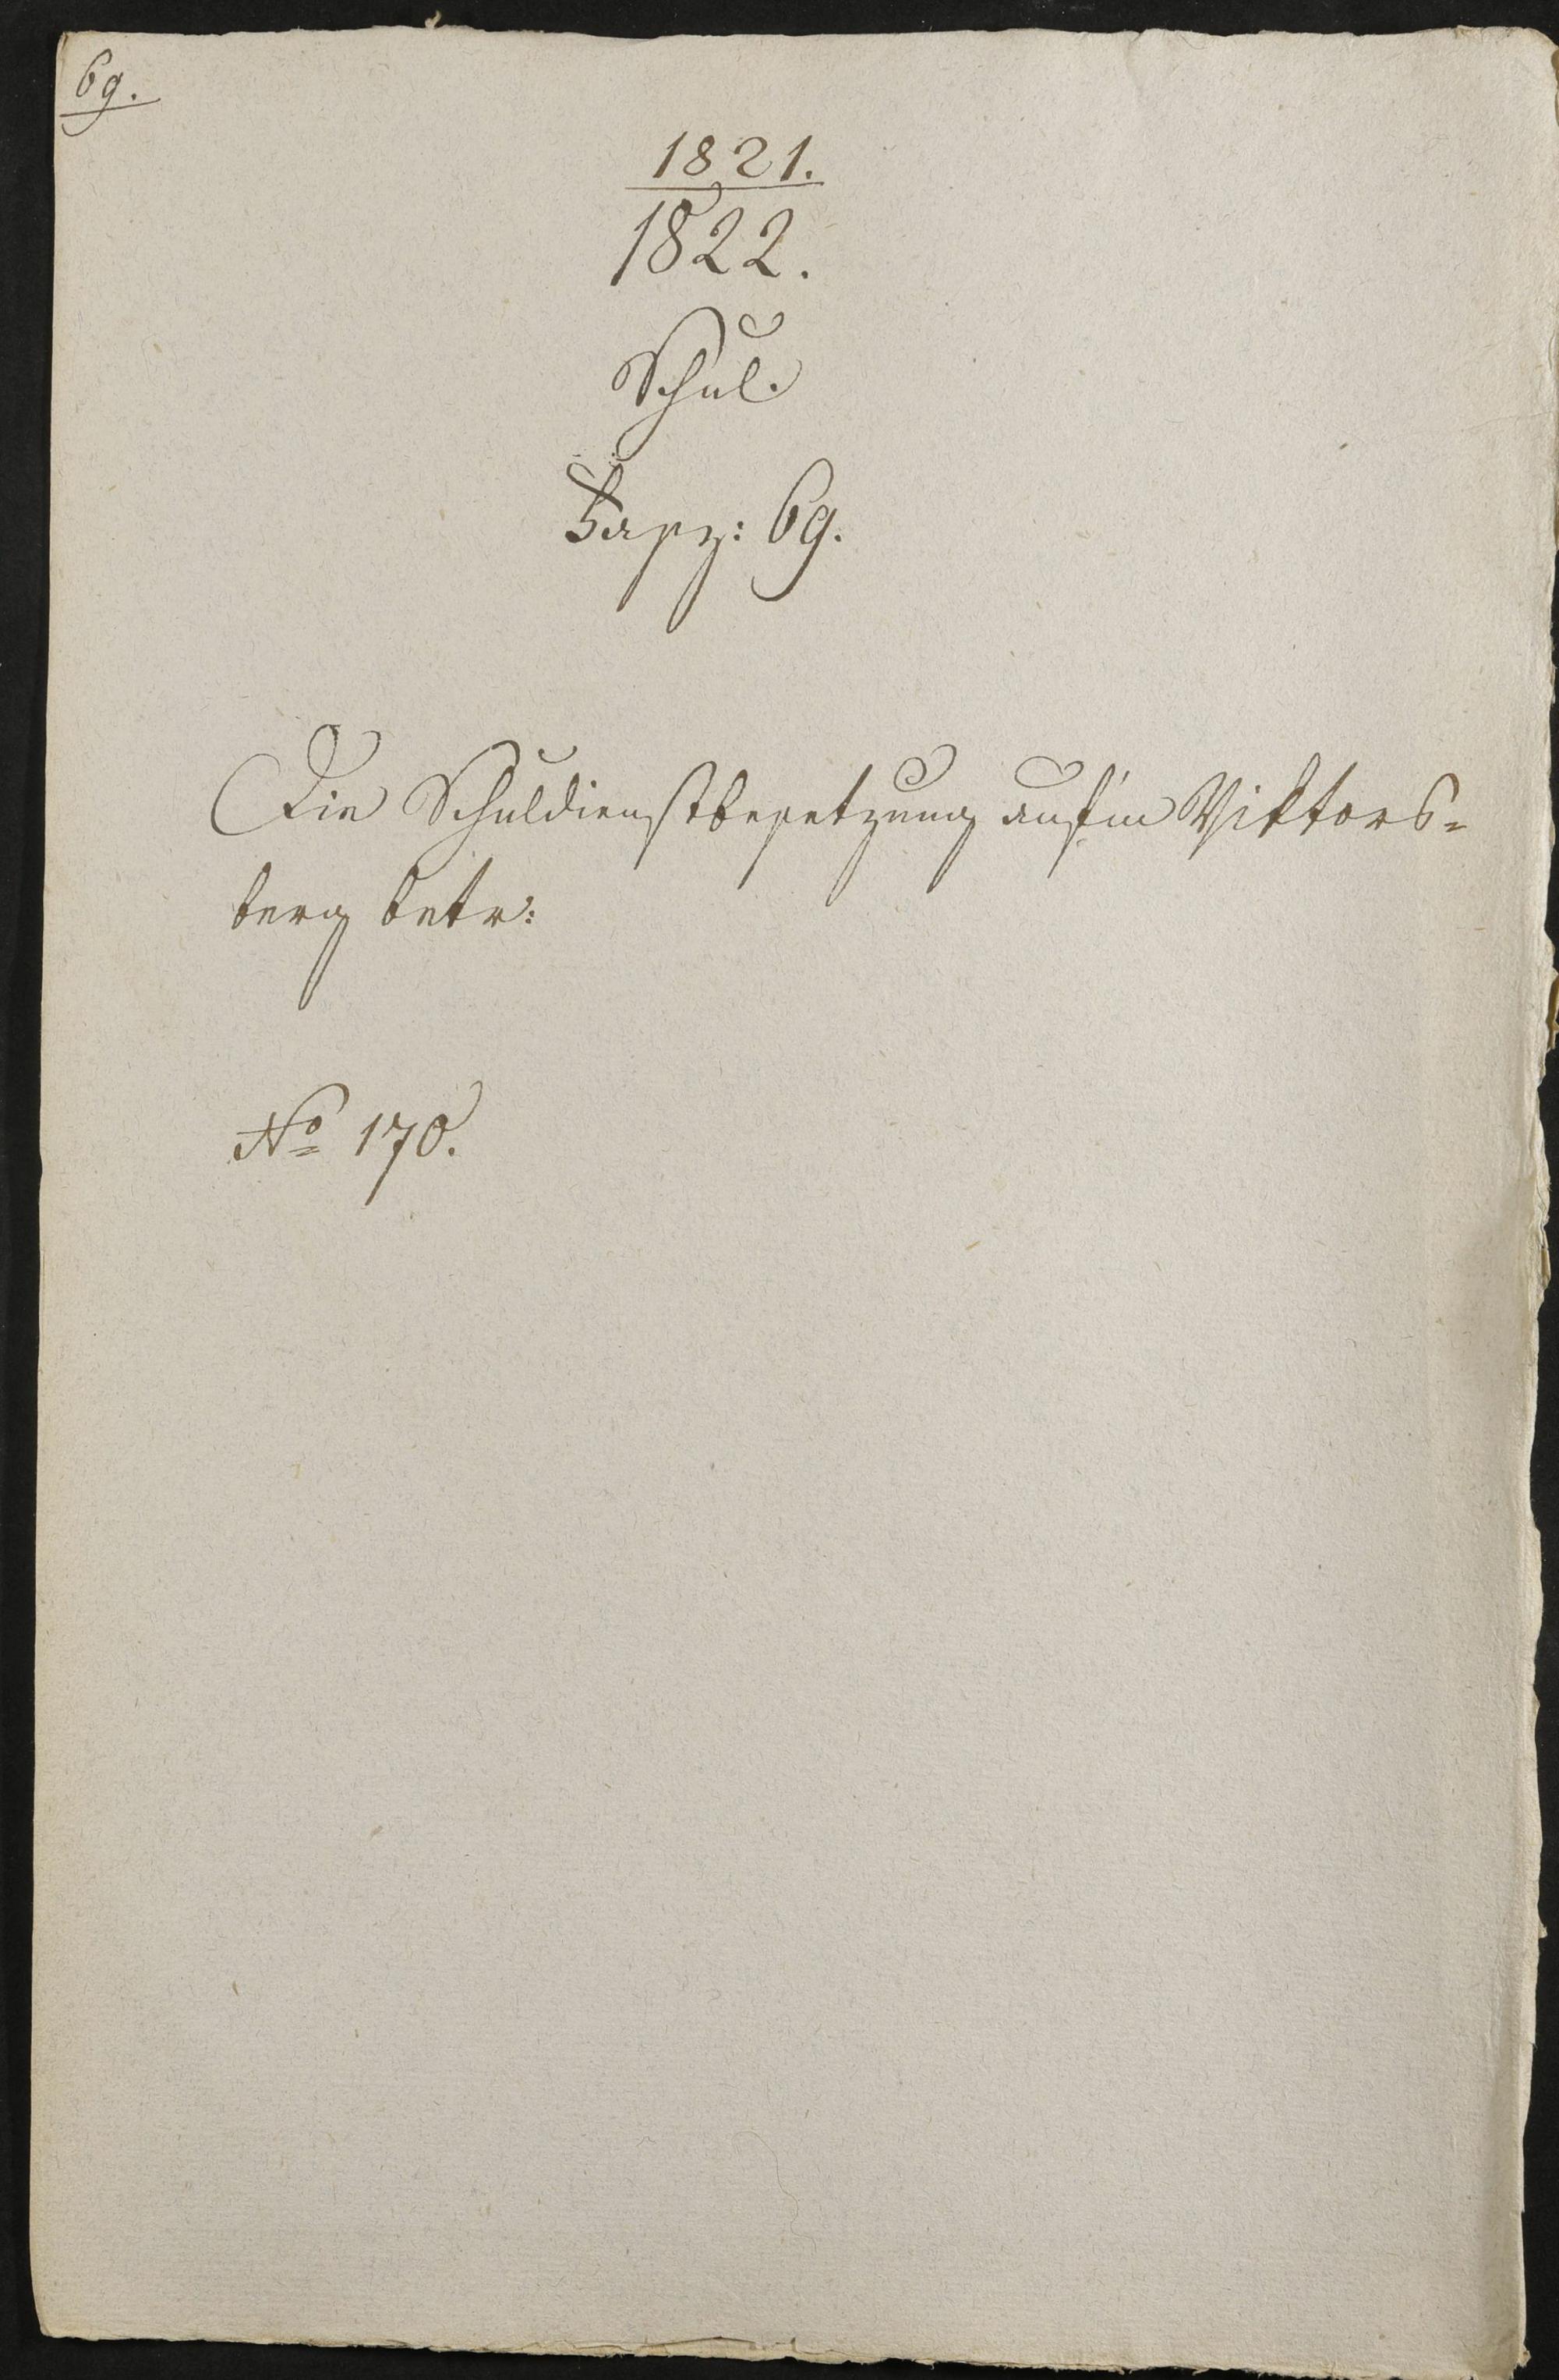 69.
1821.
1822.
Schul.
Fasz: 69.
Die Schuldienstbesetzung auf'm Viktors=
berg betr:
No 170.